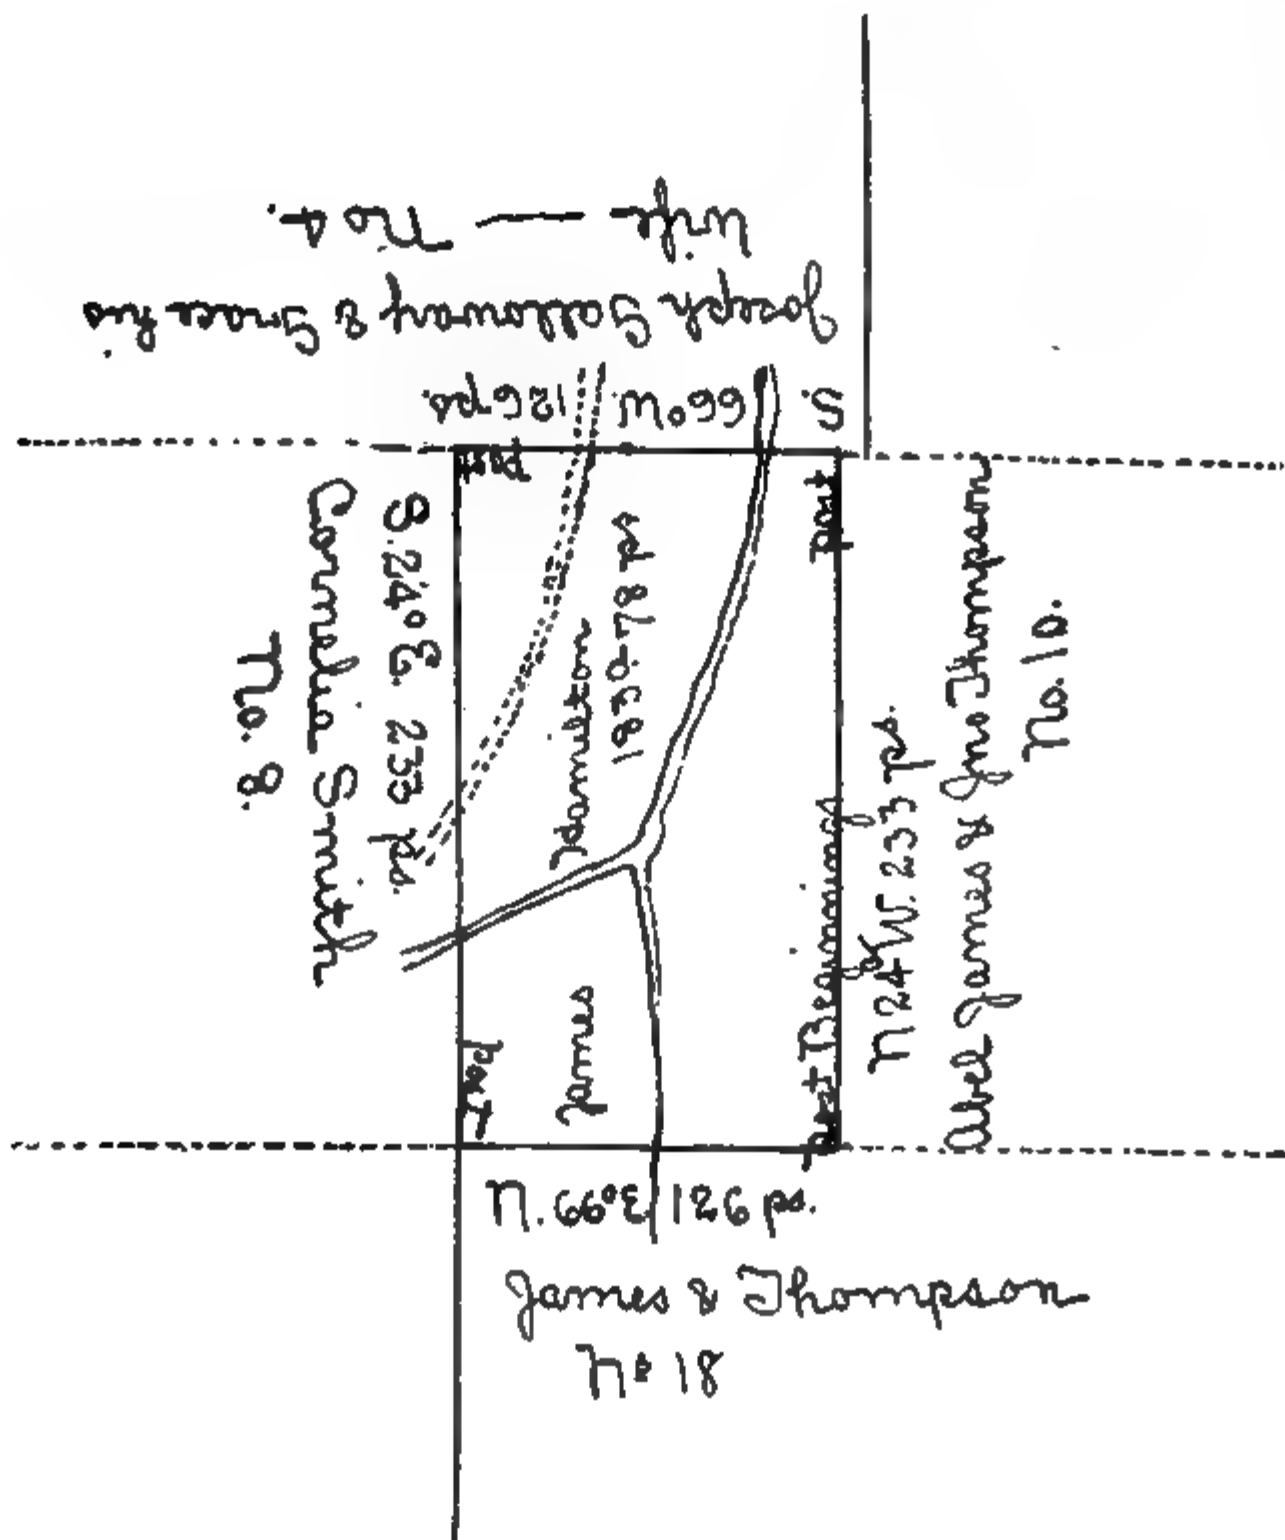 Joseph Galloway & Grace his
wife — No 4.
S. 66° W. 126 ps.
post
post
Cornelia Smith
No. 8.
S. 24° E. 233 ps.
James Hamilton
183a-78 ps
post Beginning
post
N 24° W. 233 ps.
Abel James & Jno Thompson
No. 10.
N. 66° E 126 ps.
James & Thompson
No 18